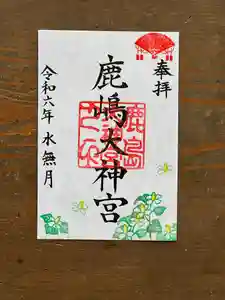 奉拝
鹿嶋大神宮
令和六年 水無月